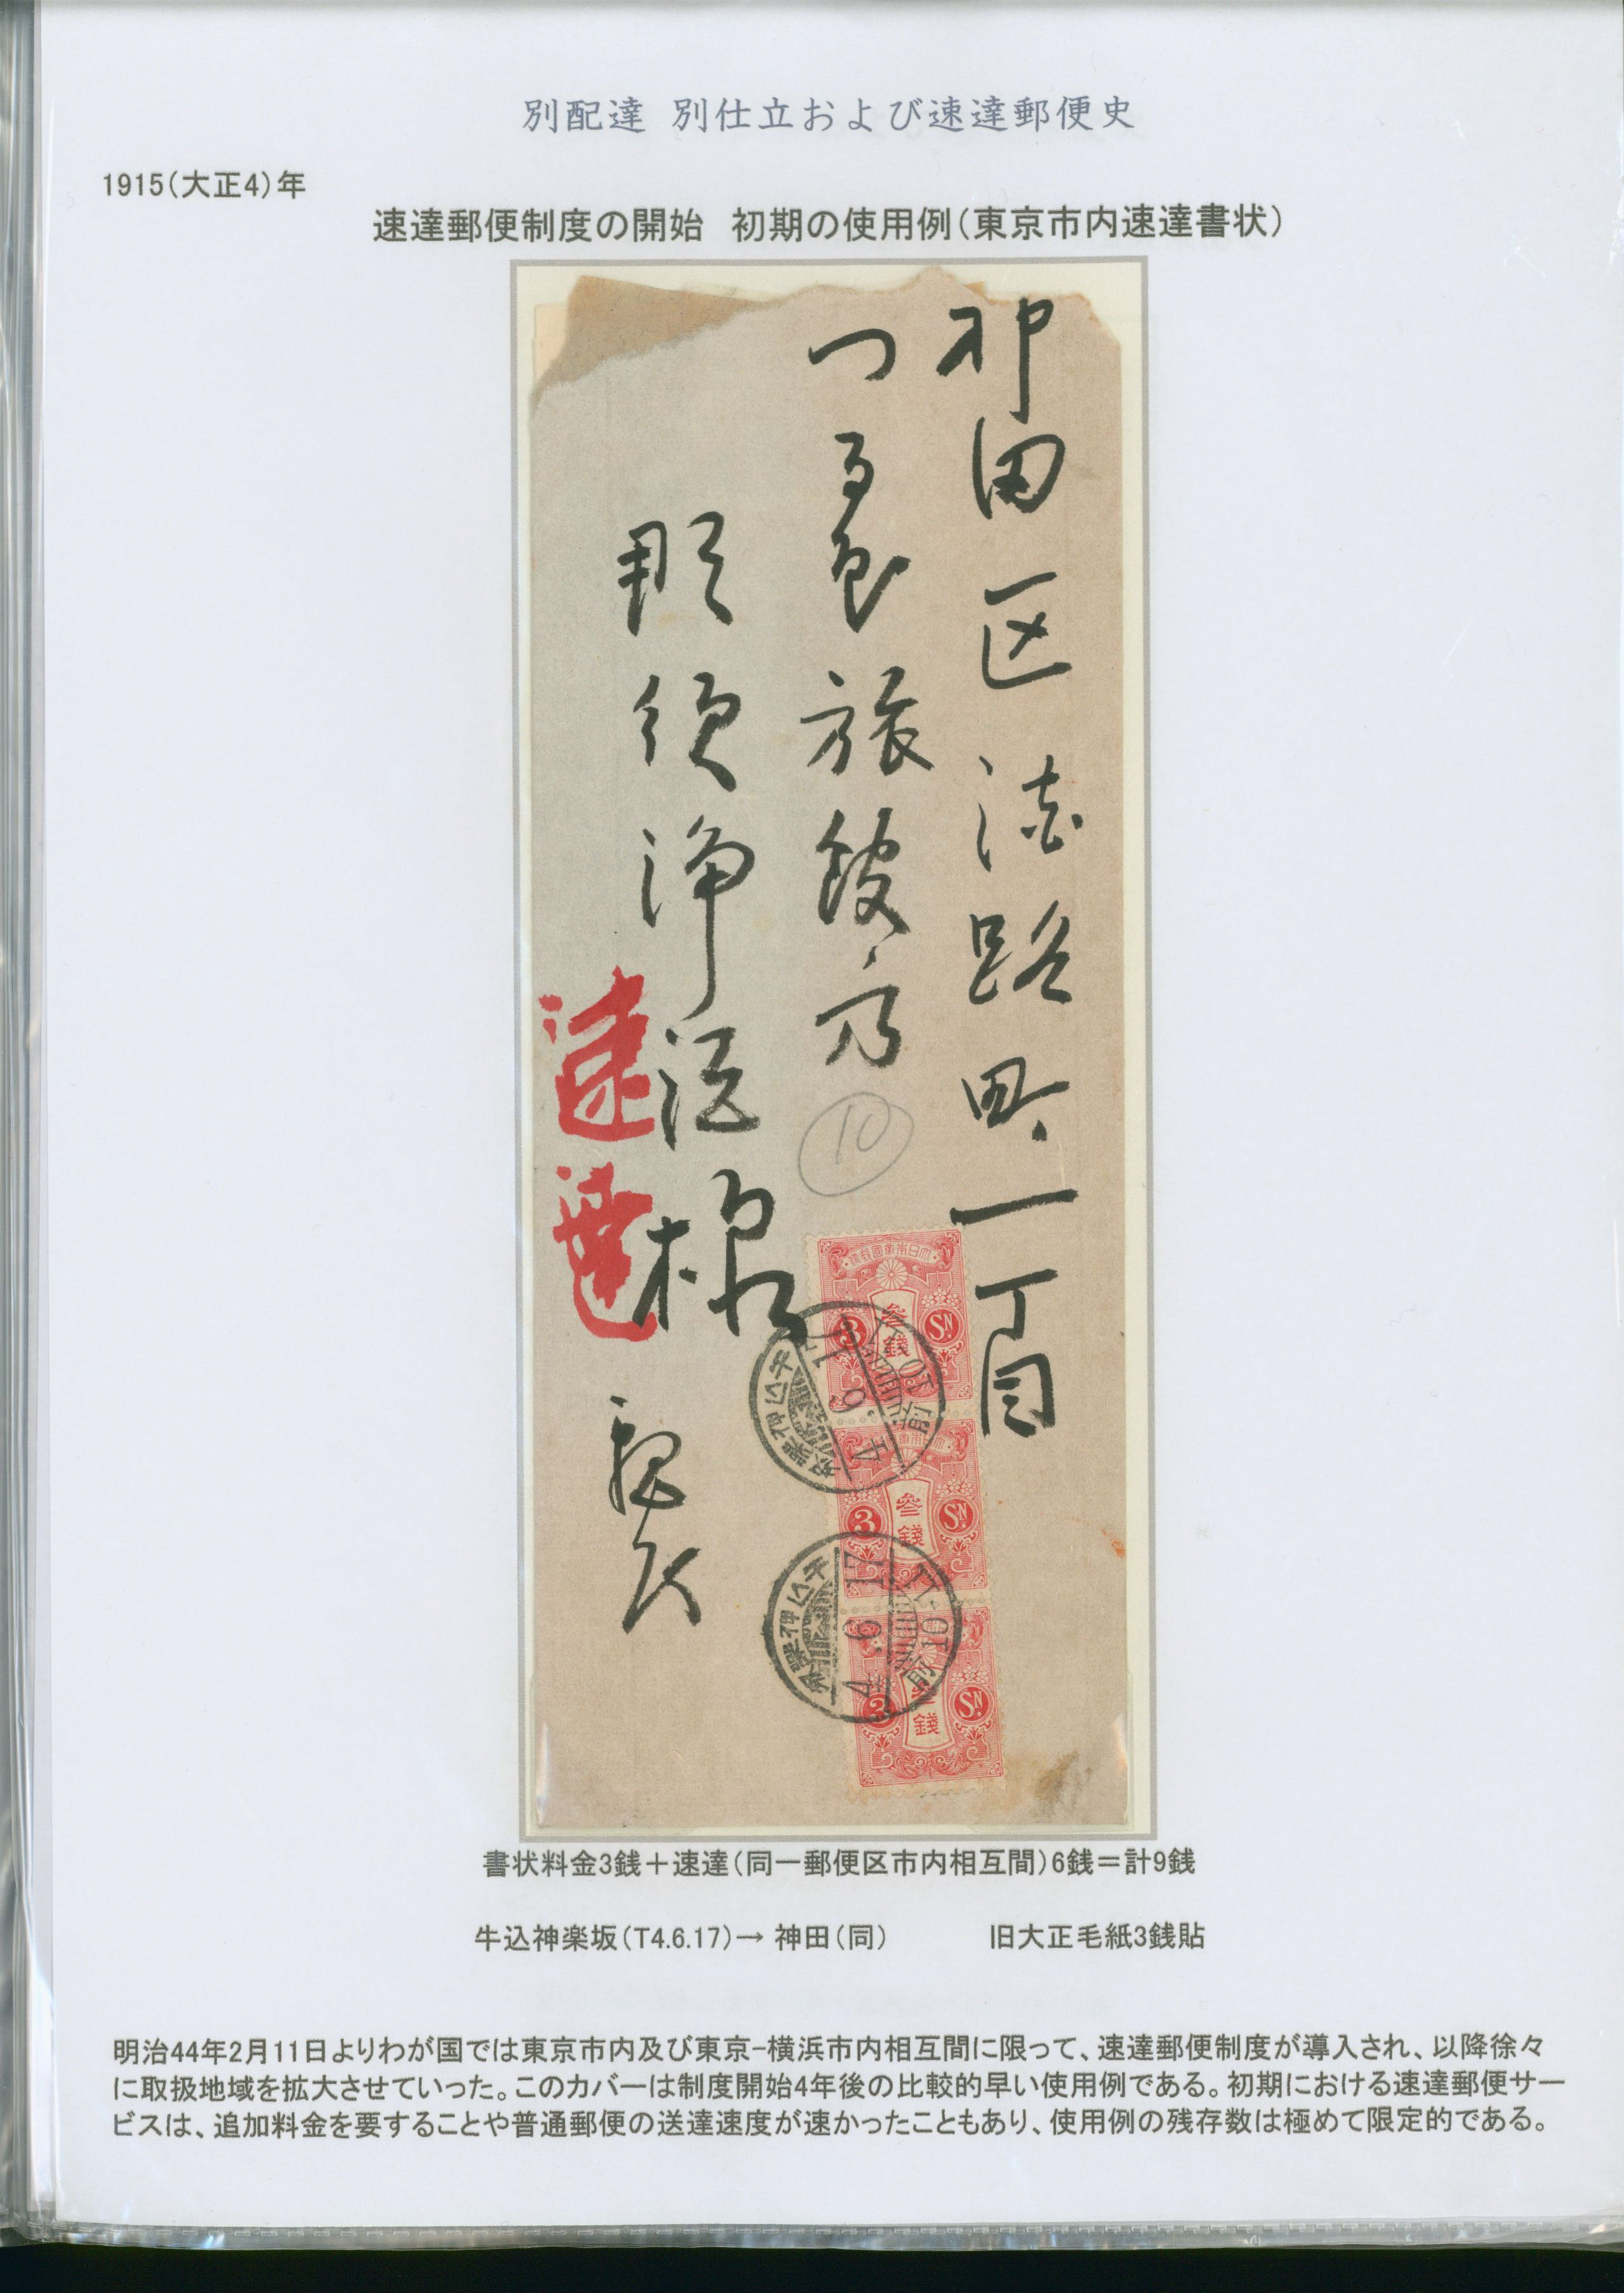 別配達 別仕立および速達郵便史
1915(大正4)年
速達郵便制度の開始 初期の使用例(東京市内速達書状)
神田区淡路町一丁目
つる花旅館方
那須浄法様
親久
速達
10
大日本帝國郵便
参銭
3
SN
4.6.17
前10-11
参銭
3
SN
4.6.17
前10-11
参銭
3
SN
書状料金3銭+速達(同一郵便区市内相互間)6銭=計9銭
牛込神楽坂(T4.6.17)→ 神田(同) 旧大正毛紙3銭貼
明治44年2月11日よりわが国では東京市内及び東京-横浜市内相互間に限って、速達郵便制度が導入され、以降徐々
に取扱地域を拡大させていった。このカバーは制度開始4年後の比較的早い使用例である。初期における速達郵便サー
ビスは、追加料金を要することや普通郵便の送達速度が速かったこともあり、使用例の残存数は極めて限定的である。